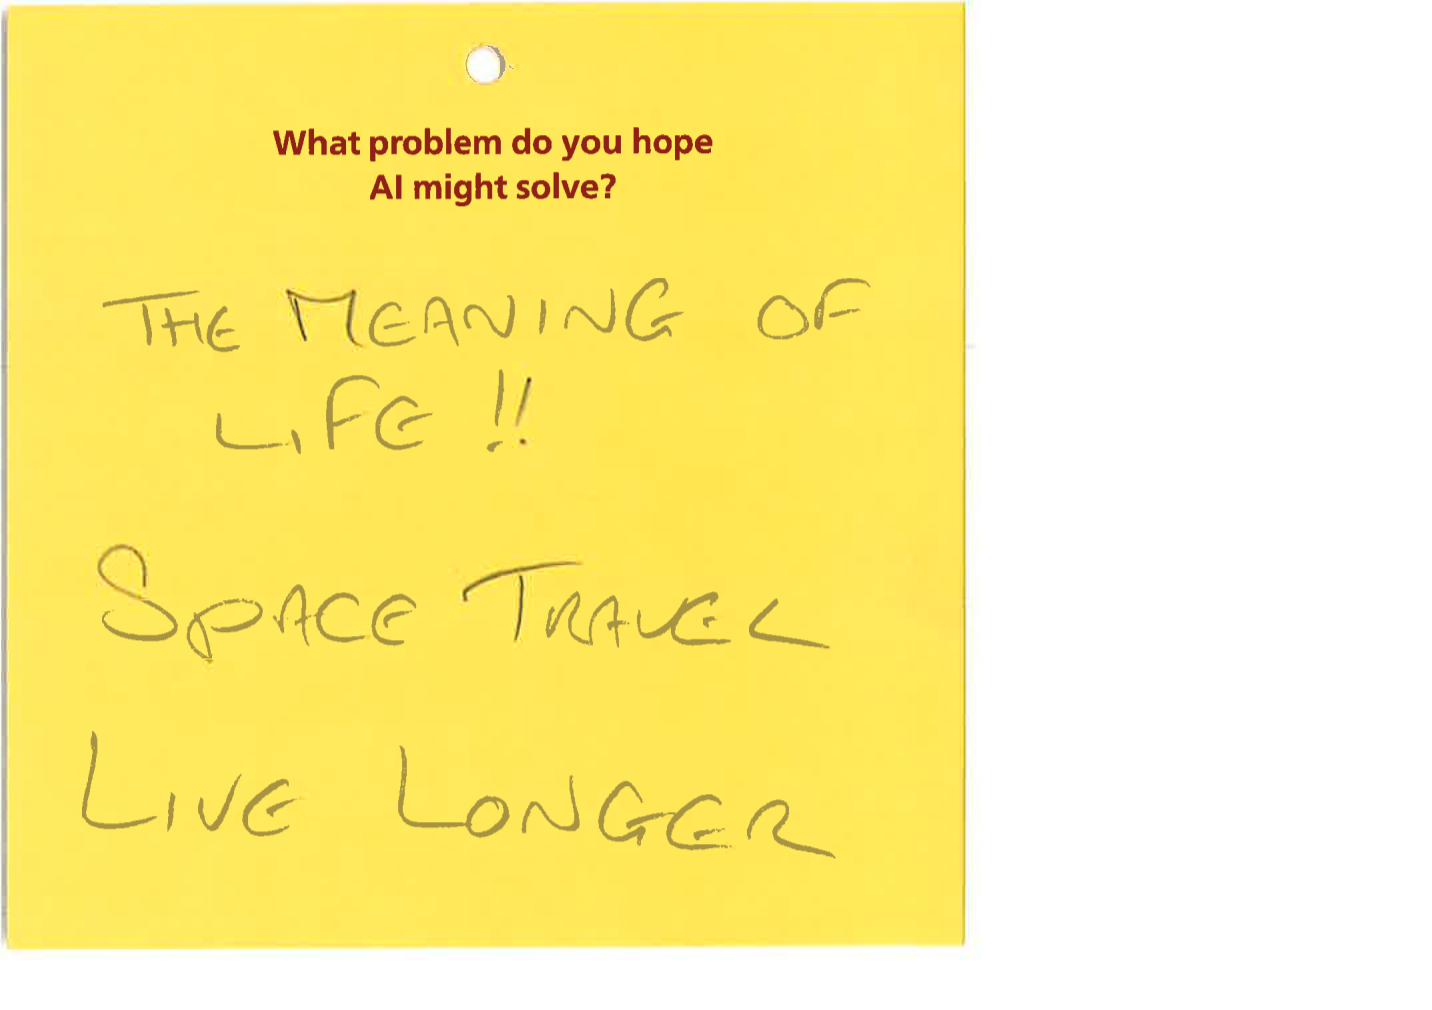 What problem do you hope
AI might solve?
THE MEANING OF
LIFE !!
SPACE TRAVEL
LIVE LONGER